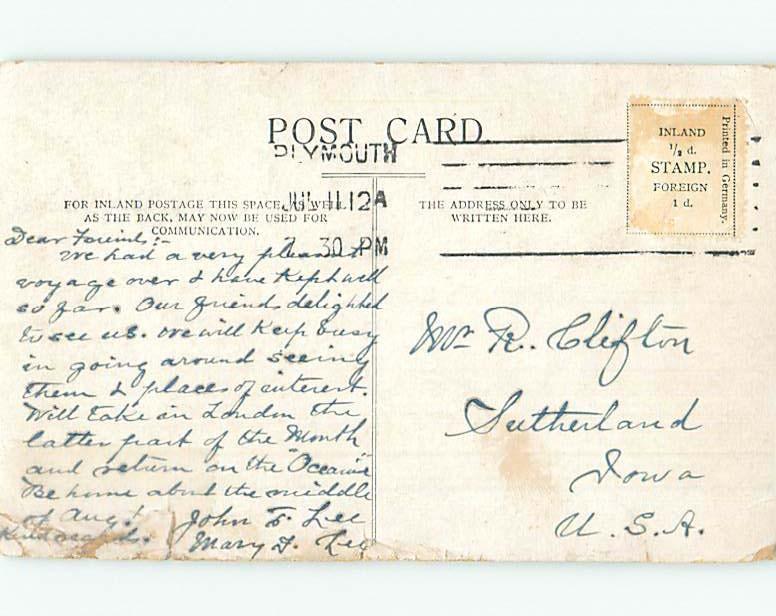 POST CARD.
PLYMOUTH
JUL 11 12 A
2 30 PM
FOR INLAND POSTAGE THIS SPACE, AS WELL
AS THE BACK, MAY NOW BE USED FOR
COMMUNICATION.
THE ADDRESS ONLY TO BE
WRITTEN HERE.
INLAND
½ d.
STAMP.
FOREIGN
1 d.
Printed in Germany.
Dear Friends:-
We had a very pleasant
voyage over & have Kept well
so far. Our friends delighted
to see us. We will Keep busy
in going around seeing
them & places of interest.
Will take in London the
latter part of the Month
and return on the "Oceanic"
Be home about the middle
of Aug!
Kind regards.
John F. Lee
Mary F. Lee
Mr R. Clifton
Sutherland
Iowa
U. S. A.